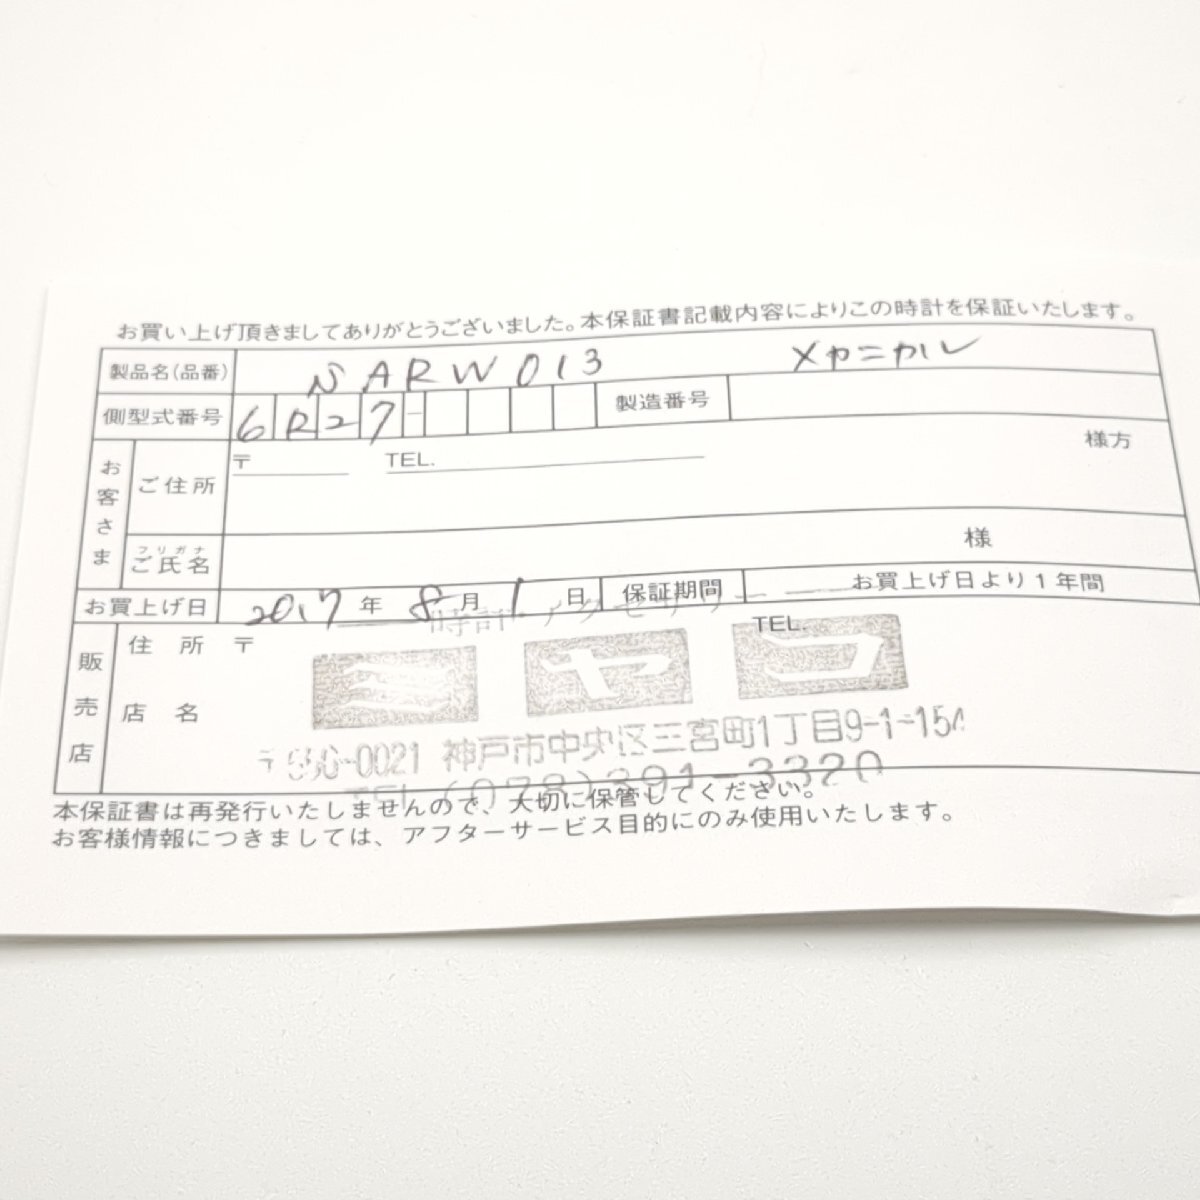 お買い上げ頂きましてありがとうございました。本保証書記載内容によりこの時計を保証いたします。
製品名(品番) SARW013 メカニカル
側型式番号 6R27- 製造番号
お客さま
ご住所 〒 TEL. 様方
フリガナ
ご氏名 様
お買上げ日 2017年 8月 1日 保証期間 お買上げ日より1年間
販売店
住所 〒 時計・アクセサリー TEL.
店名 ミヤコ
〒650-0021 神戸市中央区三宮町1丁目9-1-154
TEL(078)391-3320
本保証書は再発行いたしませんので、大切に保管してください。
お客様情報につきましては、アフターサービス目的にのみ使用いたします。